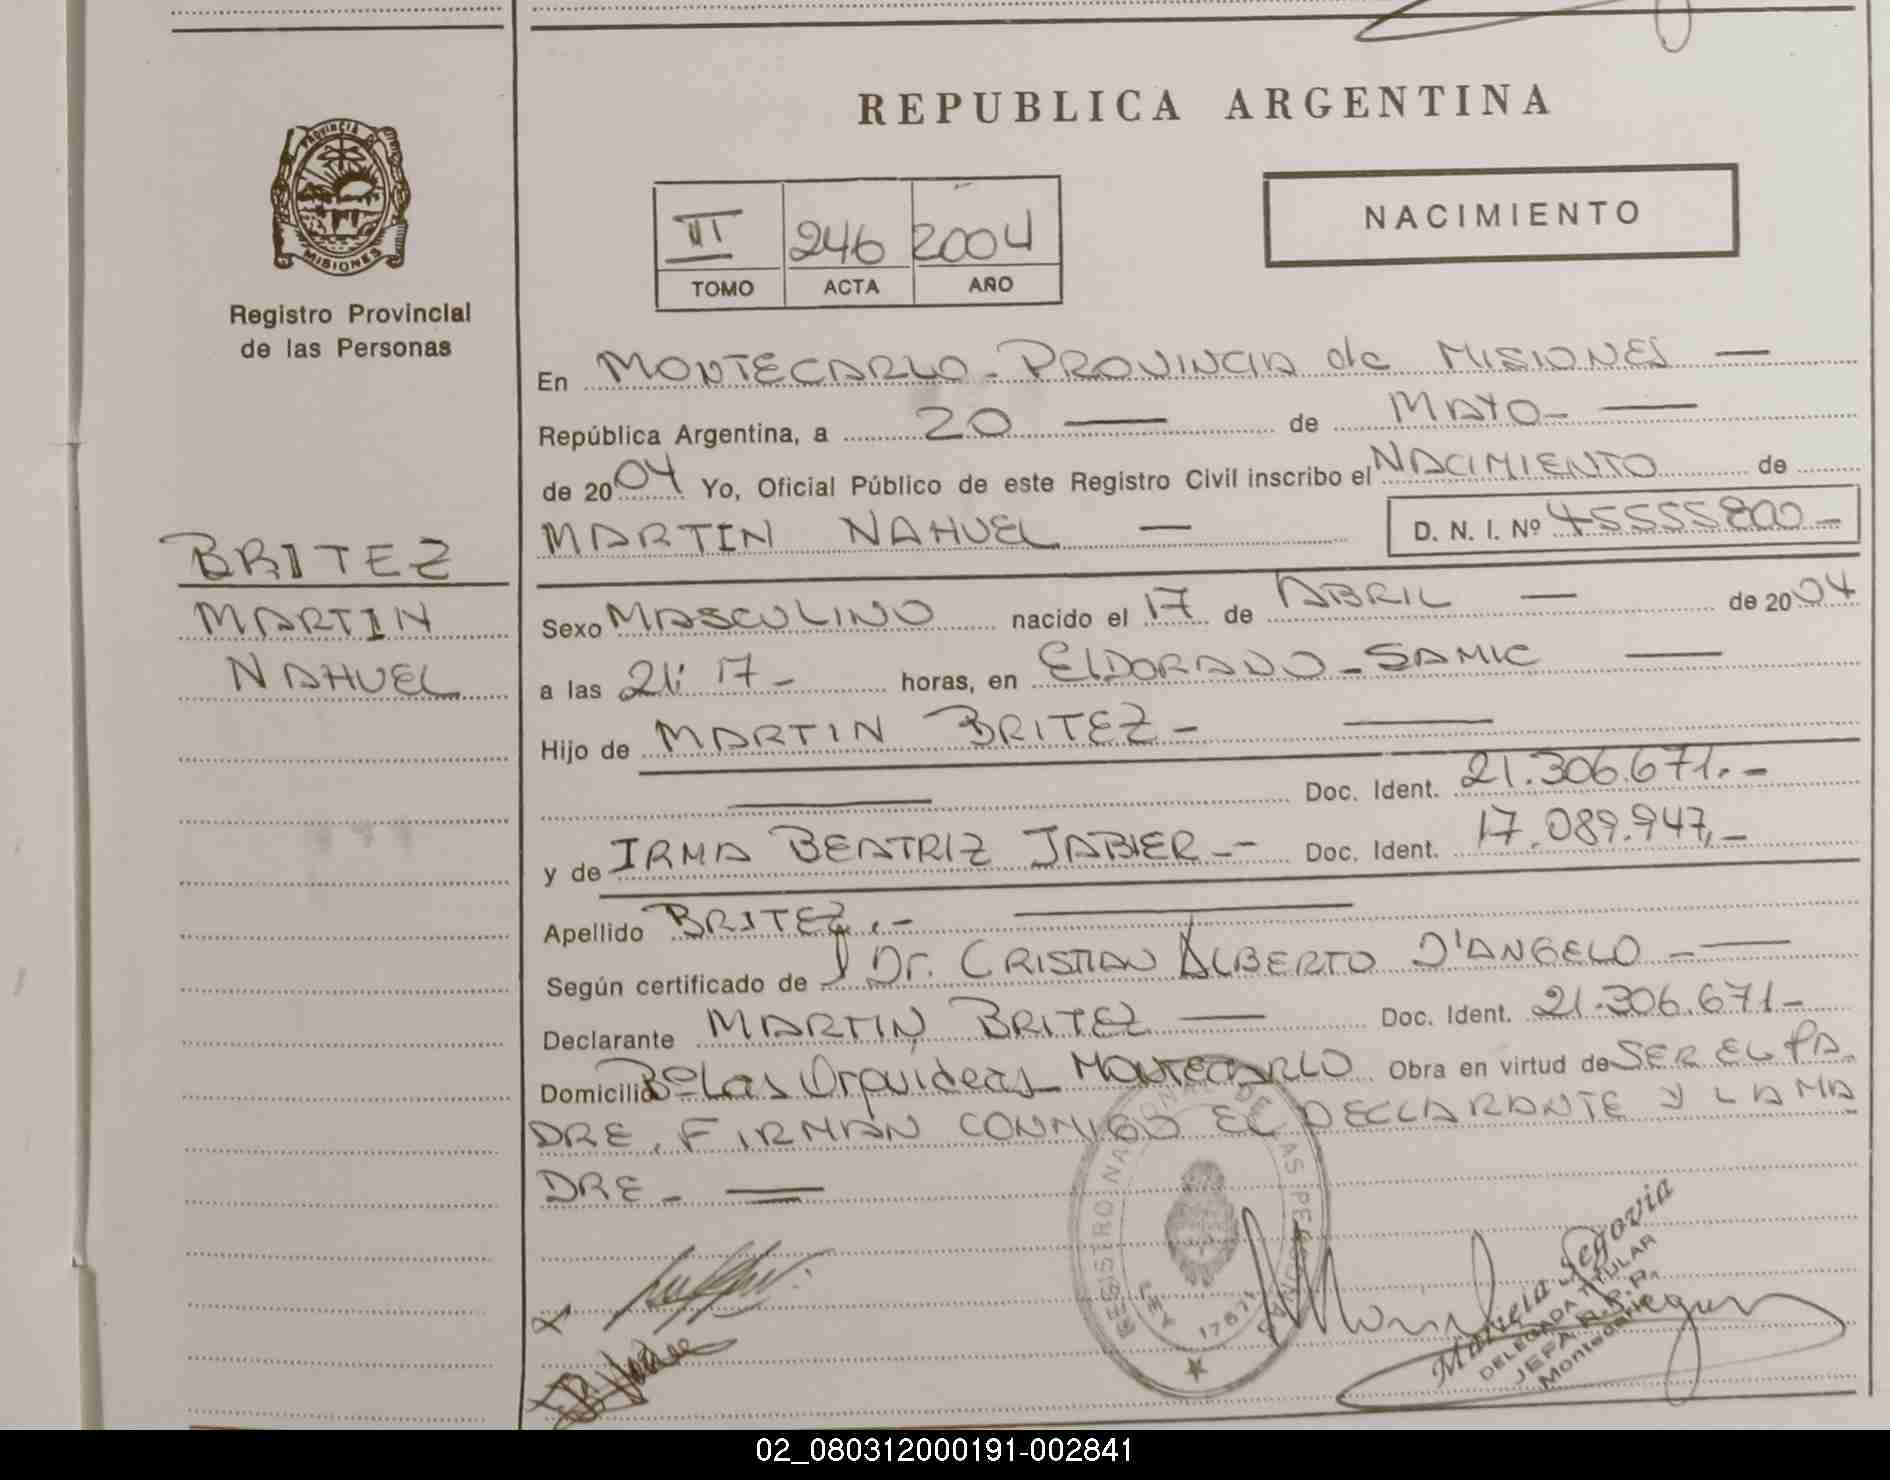 REPUBLICA ARGENTINA
PROVINCIA DE MISIONES
Registro Provincial
de las Personas
III 246 2004
TOMO ACTA AÑO
NACIMIENTO
En MONTECARLO - PROVINCIA de MISIONES —
República Argentina, a 20 — de MAYO - —
de 2004 Yo, Oficial Público de este Registro Civil inscribo el NACIMIENTO de
MARTIN NAHUEL — D. N. I. Nº 45555800 -
BRITEZ
MARTIN
NAHUEL
Sexo MASCULINO nacido el 17 de ABRIL — de 2004
a las 21:17 - horas, en ELDORADO - SAMIC —
Hijo de MARTIN BRITEZ - —
— Doc. Ident. 21.306.671.-
y de IRMA BEATRIZ JABIER - - Doc. Ident. 17.089.947,-
Apellido BRITEZ.- —
Según certificado de Dr. CRISTIAN ALBERTO D'ANGELO - —
Declarante MARTIN BRITEZ — Doc. Ident. 21.306.671-
Domicilio Bº Las Orquideas MONTECARLO Obra en virtud de SER EL PA-
DRE, FIRMAN CONMIGO EL DECLARANTE Y LA MA
DRE - —
REGISTRO NACIONAL DE LAS PERSONAS
LEY 17671
Mariela Segovia
DELEGADA TITULAR
JEFA R.P.P.
Montecarlo
02_080312000191-002841